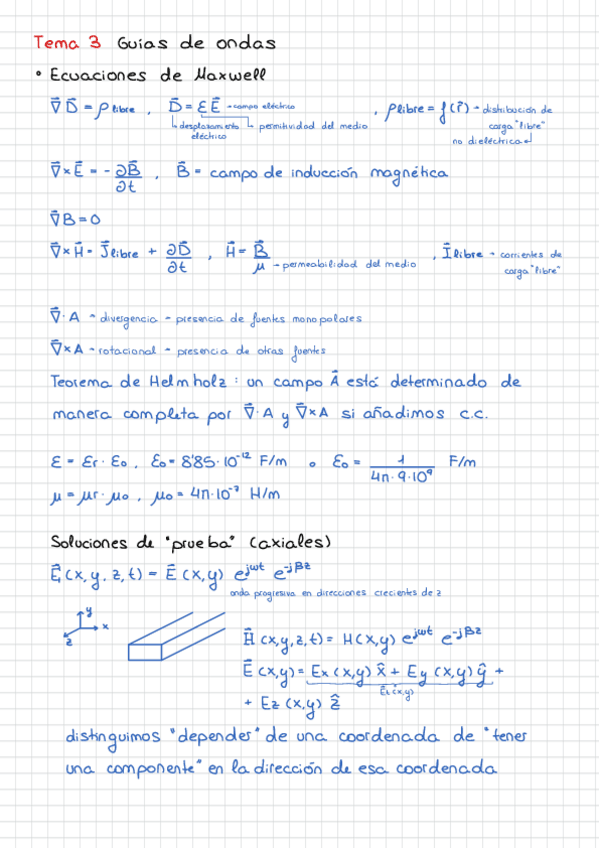 Tema 3 Guias de ondas
• Ecuaciones de Maxwell
∇⃗ D⃗ = ρ libre , D⃗ = ε E⃗ → campo eléctrico , ρ libre = f(r⃗) → distribución de
desplazamiento permitividad del medio carga "libre"
eléctrico no dieléctrica
∇⃗ × E⃗ = - ∂B⃗/∂t , B⃗ = campo de inducción magnética
∇⃗ B = 0
∇⃗ × H⃗ = J⃗ libre + ∂D⃗/∂t , H⃗ = B⃗/μ → permeabilidad del medio , I⃗ libre → corrientes de
carga "libre"
∇⃗ · A → divergencia → presencia de fuentes monopolares
∇⃗ × A → rotacional → presencia de otras fuentes
Teorema de Helmholz : un campo A⃗ está determinado de
manera completa por ∇⃗ · A y ∇⃗ × A si añadimos c.c.
ε = εr · ε0 , ε0 = 8'85 · 10⁻¹² F/m o ε0 = 1/(4π · 9 · 10⁹) F/m
μ = μr · μ0 , μ0 = 4π · 10⁻⁷ H/m
Soluciones de "prueba" (axiales)
E⃗(x, y, z, t) = E⃗ (x, y) e^jωt e^-jβz
onda progresiva en direcciones crecientes de z
y
x
z
H⃗ (x, y, z, t) = H(x, y) e^jωt e^-jβz
E⃗ (x, y) = Ex (x, y) x̂ + Ey (x, y) ŷ +
(x, y)
+ Ez (x, y) ẑ
distinguimos "depender" de una coordenada de "tener
una componente" en la dirección de esa coordenada